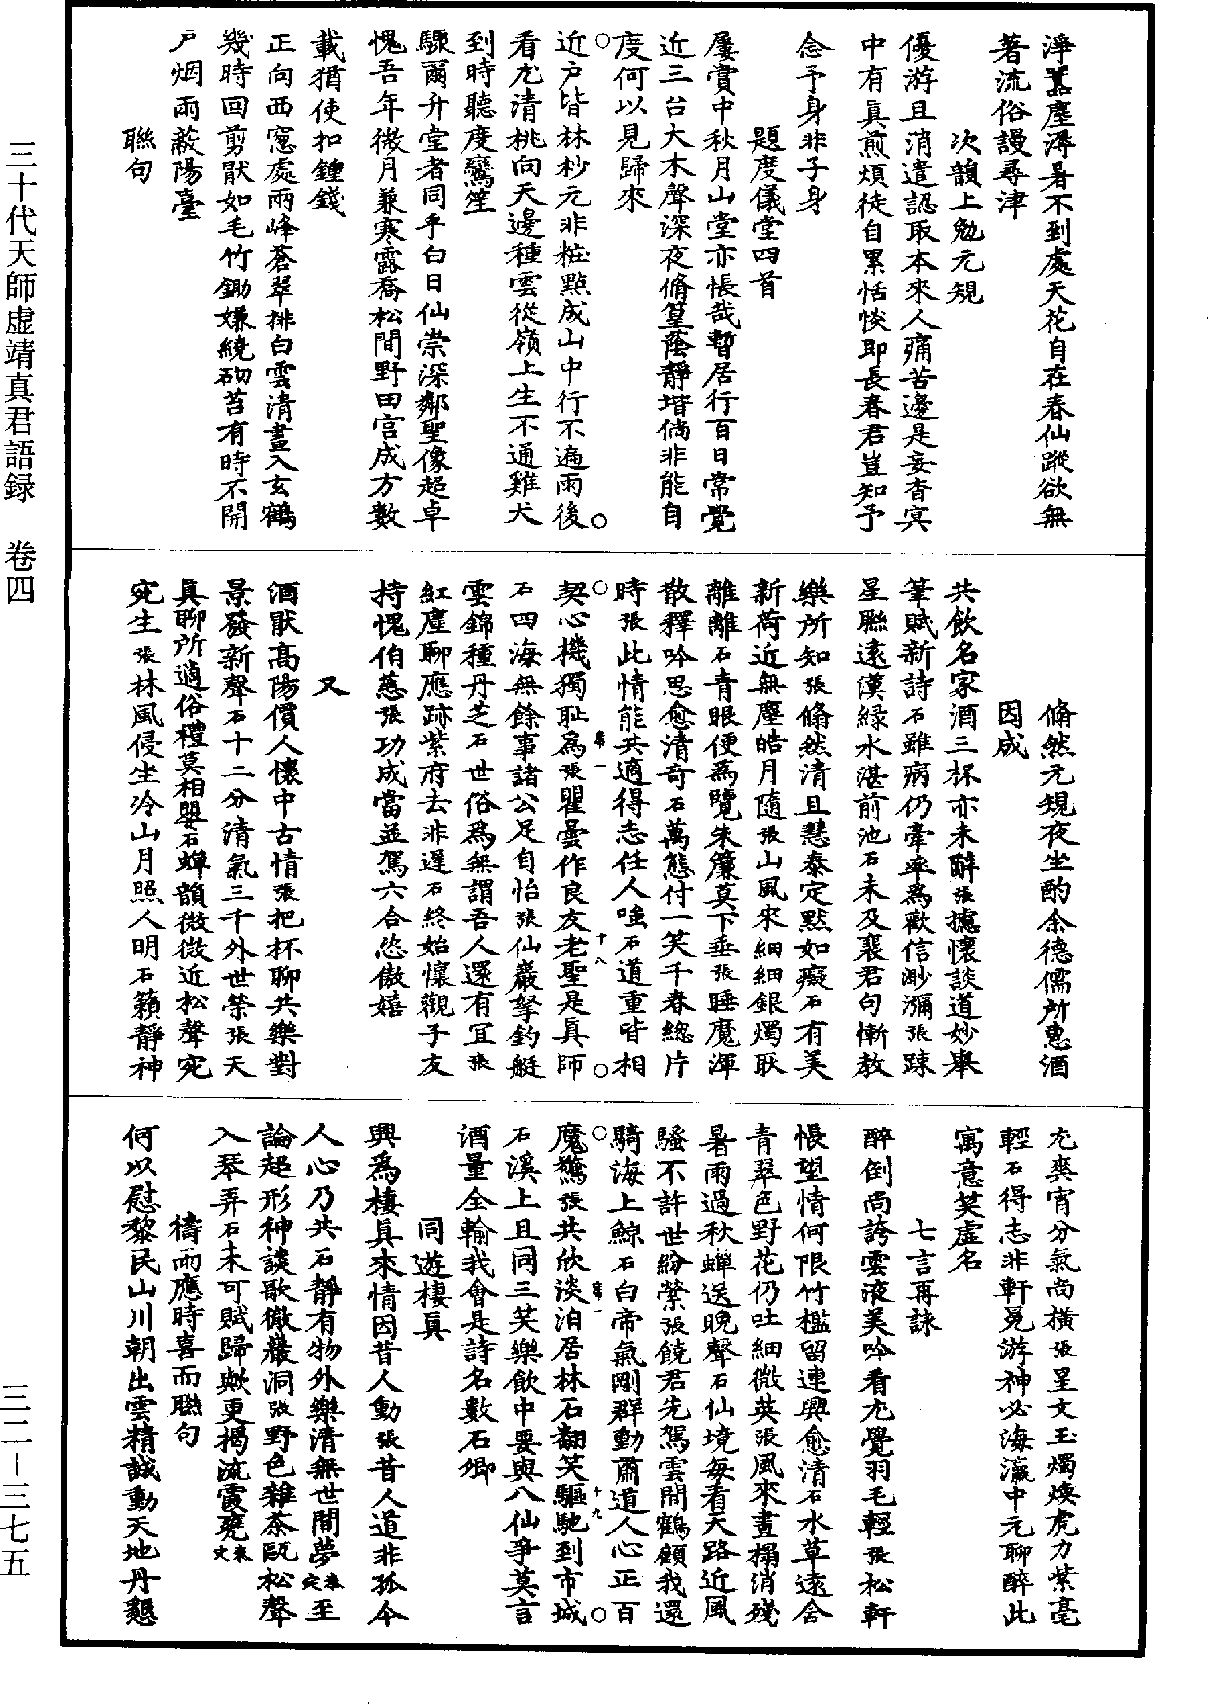 淨囂塵溽暑不到處天花自在春仙蹤欲無
著流俗謾尋津
次韻上勉元規
優游且消遣認取本來人痛苦邊是妄杳冥
中有真煎煩徒自累恬惔即長春君豈知予
念予身非子身
題度儀堂四首
屢賞中秋月山堂亦悵哉暫居行百日常覺
近三台大木聲深夜脩篁蔭靜堦倘非能自
度何以見歸來
近戶皆林杪元非粧點成山中行不遍雨後
看尤清桃向天邊種雲從嶺上生不通雞犬
到時聽度鸞笙
驟爾升堂者同乎白日仙崇深鄰聖像超卓
愧吾年微月兼寒露喬松間野田宫成方數
載猶使扣鍾錢
正向西窻處兩峰蒼翠排白雲清晝入玄鶴
幾時回剪猒如毛竹鋤嫌繞砌苔有時不開
戶烟雨蔽陽臺
聯句
脩然元規夜坐酌余德儒所惠酒
因成
共飲名家酒三杯亦未醉張攄懷談道妙舉
筆賦新詩石雖病仍牽率爲歡信渺瀰張踈
星聯遠漢緑水湛前池石未及襄君句慚教
樂所知張脩然清且慧泰定點如癡石有美
新荷近無塵皓月隨張山風來細細銀燭耿
離離石青眼便爲覽朱簾莫下垂張睡魔渾
散釋吟思愈清奇石萬態付一笑千春緫片
時張此情能共適得志任人嗤石道重皆相
契心機獨耻爲張瞿曇作良友老聖是真師
石四海無餘事諸公足自怡張仙巖拏釣艇
雲錦種丹芝石世俗爲無謂吾人還有宜張
紅塵聊應跡紫府去非遲石終始懷觀子友
持愧伯慈張功成當並駕六合恣傲嬉
又
酒猒高陽價人懷中古情張把杯聊共樂對
景發新聲石十二分清氣三千外世榮張天
真聊所適俗禮莫相嬰石蟬韻微微近松聲宛
宛生張林風侵坐冷山月照人明石籟靜神
尤爽宵分氣尚橫張星文玉燭煥虎力紫毫
輕石得志非軒冕游神必海瀛中元聊醉此
寓意笑虛名
七言再詠
醉倒尚誇雲液美吟看尤覺羽毛輕張松軒
悵望情何限竹檻留連興愈清石水草遠含
青翠色野花仍吐細微英張風來晝榻消殘
暑雨過秋蟬送晚聲石仙境每看天路近風
騷不許世紛縈張饒君先駕雲間鶴顧我還
騎海上鯨石白帝氣剛群動肅道人心正百
魔驚張共欣淡泊居林石翻笑驅馳到市城
石溪上且同三笑樂飲中要與八仙爭莫言
酒量全輸我會是詩名數石卿
同遊棲真
興爲棲真來情因昔人動張昔人道非孤今
人心乃共石靜有物外樂清無世間夢至
論超形神談歌徹巖洞張野色雜茶甌松聲
入琴弄石未可賦歸歟更揭流霞甕
禱雨應時喜而聯句
何以慰黎民山川朝出雲精誠動天地丹懇
三十代天師虛靖真君語録　卷四
三二－三七五